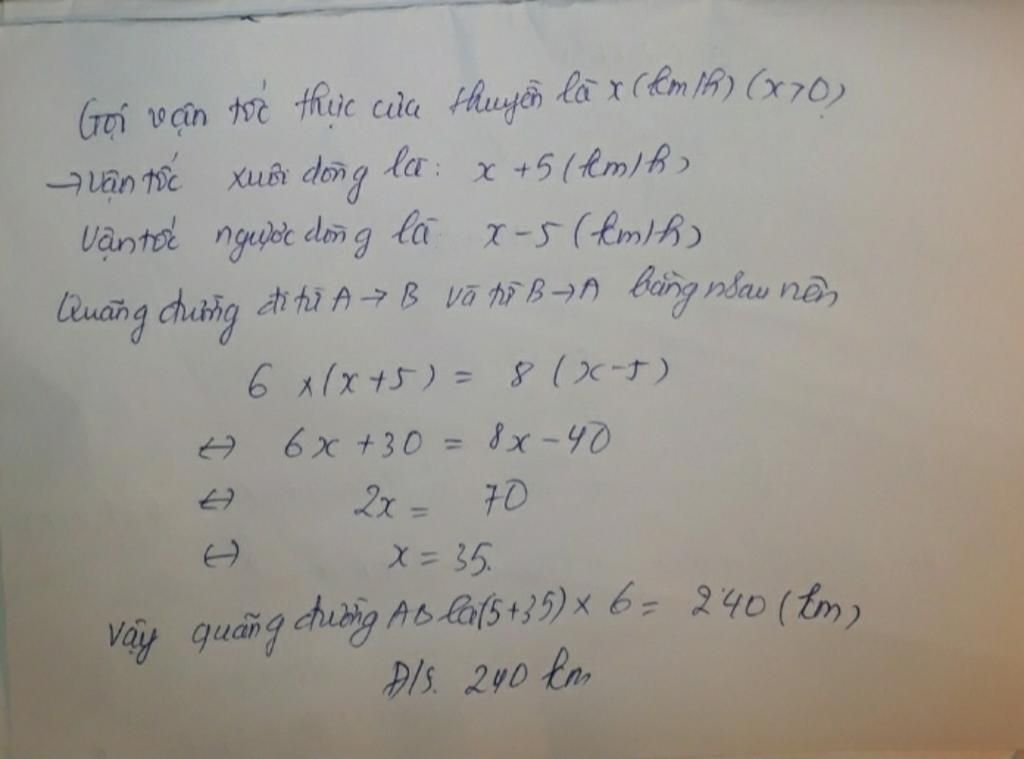 Gọi vận tốc thực của thuyền là x (km/h) (x>0)
→ vận tốc xuôi dòng là: x + 5 (km/h)
Vận tốc ngược dòng là x - 5 (km/h)
Quãng đường đi từ A → B và từ B → A bằng nhau nên
6 x (x + 5) = 8 (x - 5)
⇔ 6x + 30 = 8x - 40
⇔ 2x = 70
⇔ x = 35.
Vậy quãng đường AB là (5+35) x 6 = 240 (km)
Đ/s. 240 km